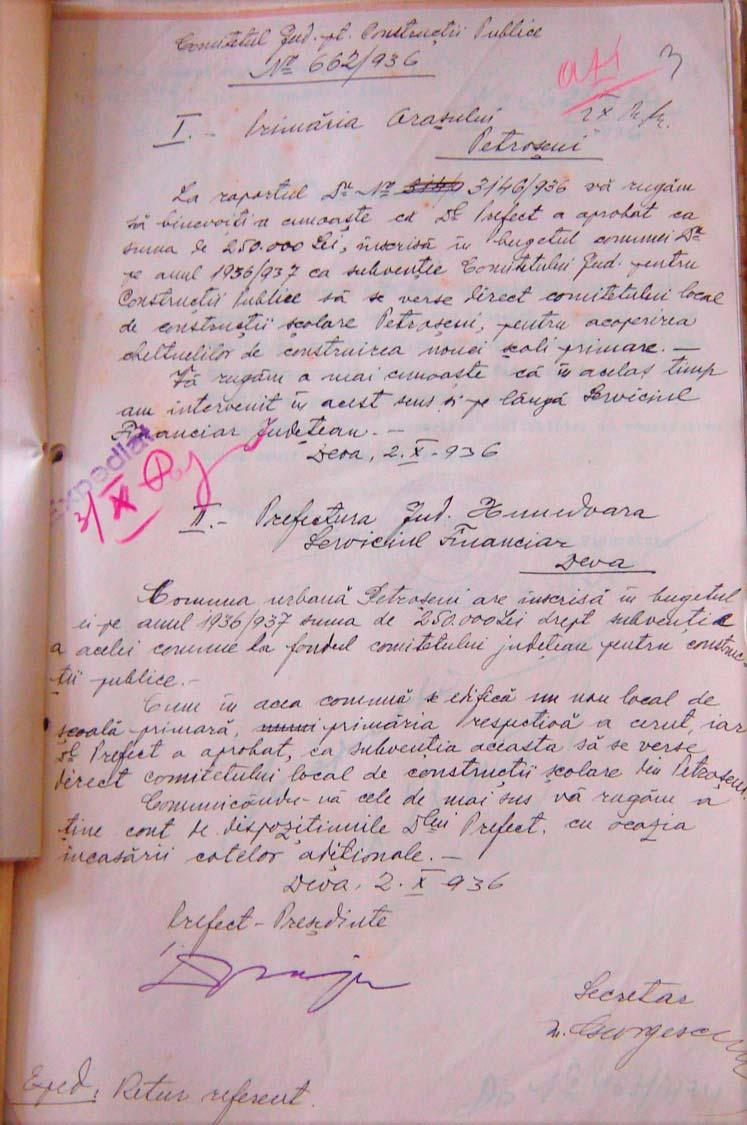 Comitetul Jud. pt. Construcții Publice
Nr 662/936
3
I.- Primăria Orașului
Petroșeni
2 X
La raportul Dv. Nr. 3146/936 vă rugăm
să binevoiți a cunoaște că Dl Prefect a aprobat ca
suma de 250.000 Lei, înscrisă în bugetul comunei Dv.
pe anul 1936/937 ca subvenție Comitetului Jud. pentru
Construcții Publice să se verse direct comitetului local
de construcții școlare Petroșeni, pentru acoperirea
cheltuelilor de construirea nouei școli primare.-
Vă rugăm a mai cunoaște că în acelaș timp
am intervenit în acest sens și pe lângă Serviciul
Financiar Județean.-
Deva, 2. X-936
Expediat
3/X
II.- Prefectura Jud. Hunedoara
Serviciul Financiar
Deva
Comuna urbană Petroșeni are înscrisă în bugetul
ei pe anul 1936/937 suma de 250.000 Lei drept subvenție
a acelei comune la fondul comitetului județean pentru construc-
ții publice.-
Cum în acea comună se edifică un nou local de
școală primară, primăria respectivă a cerut, iar
Dl Prefect a aprobat, ca subvenția aceasta să se verse
direct comitetului local de construcții școlare din Petroșeni.
Comunicându-vă cele de mai sus vă rugăm a
ține cont de dispozițiunile Dlui Prefect. cu ocazia
încasării cotelor adiționale.-
Deva, 2. X-936
Prefect-Președinte
Secretar
Georgescu
Exped: Retur referent.